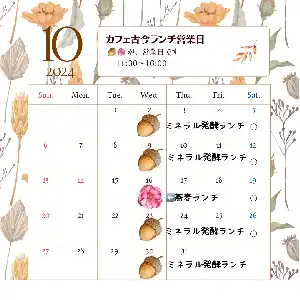 10
2024
カフェ古今ランチ営業日
が、営業日です
11:00~16:00
Sun. Mon. Tue. Wed. Thu. Fri. Sat.
1 2 3 4 5
ミネラル発酵ランチ ○
6 7 8 9 10 11 12
ミネラル発酵ランチ ○
13 14 15 16 17 18 19
蕎麦ランチ ○
20 21 22 23 24 25 26
ミネラル発酵ランチ ○
27 28 29 30 31
ミネラル発酵ランチ